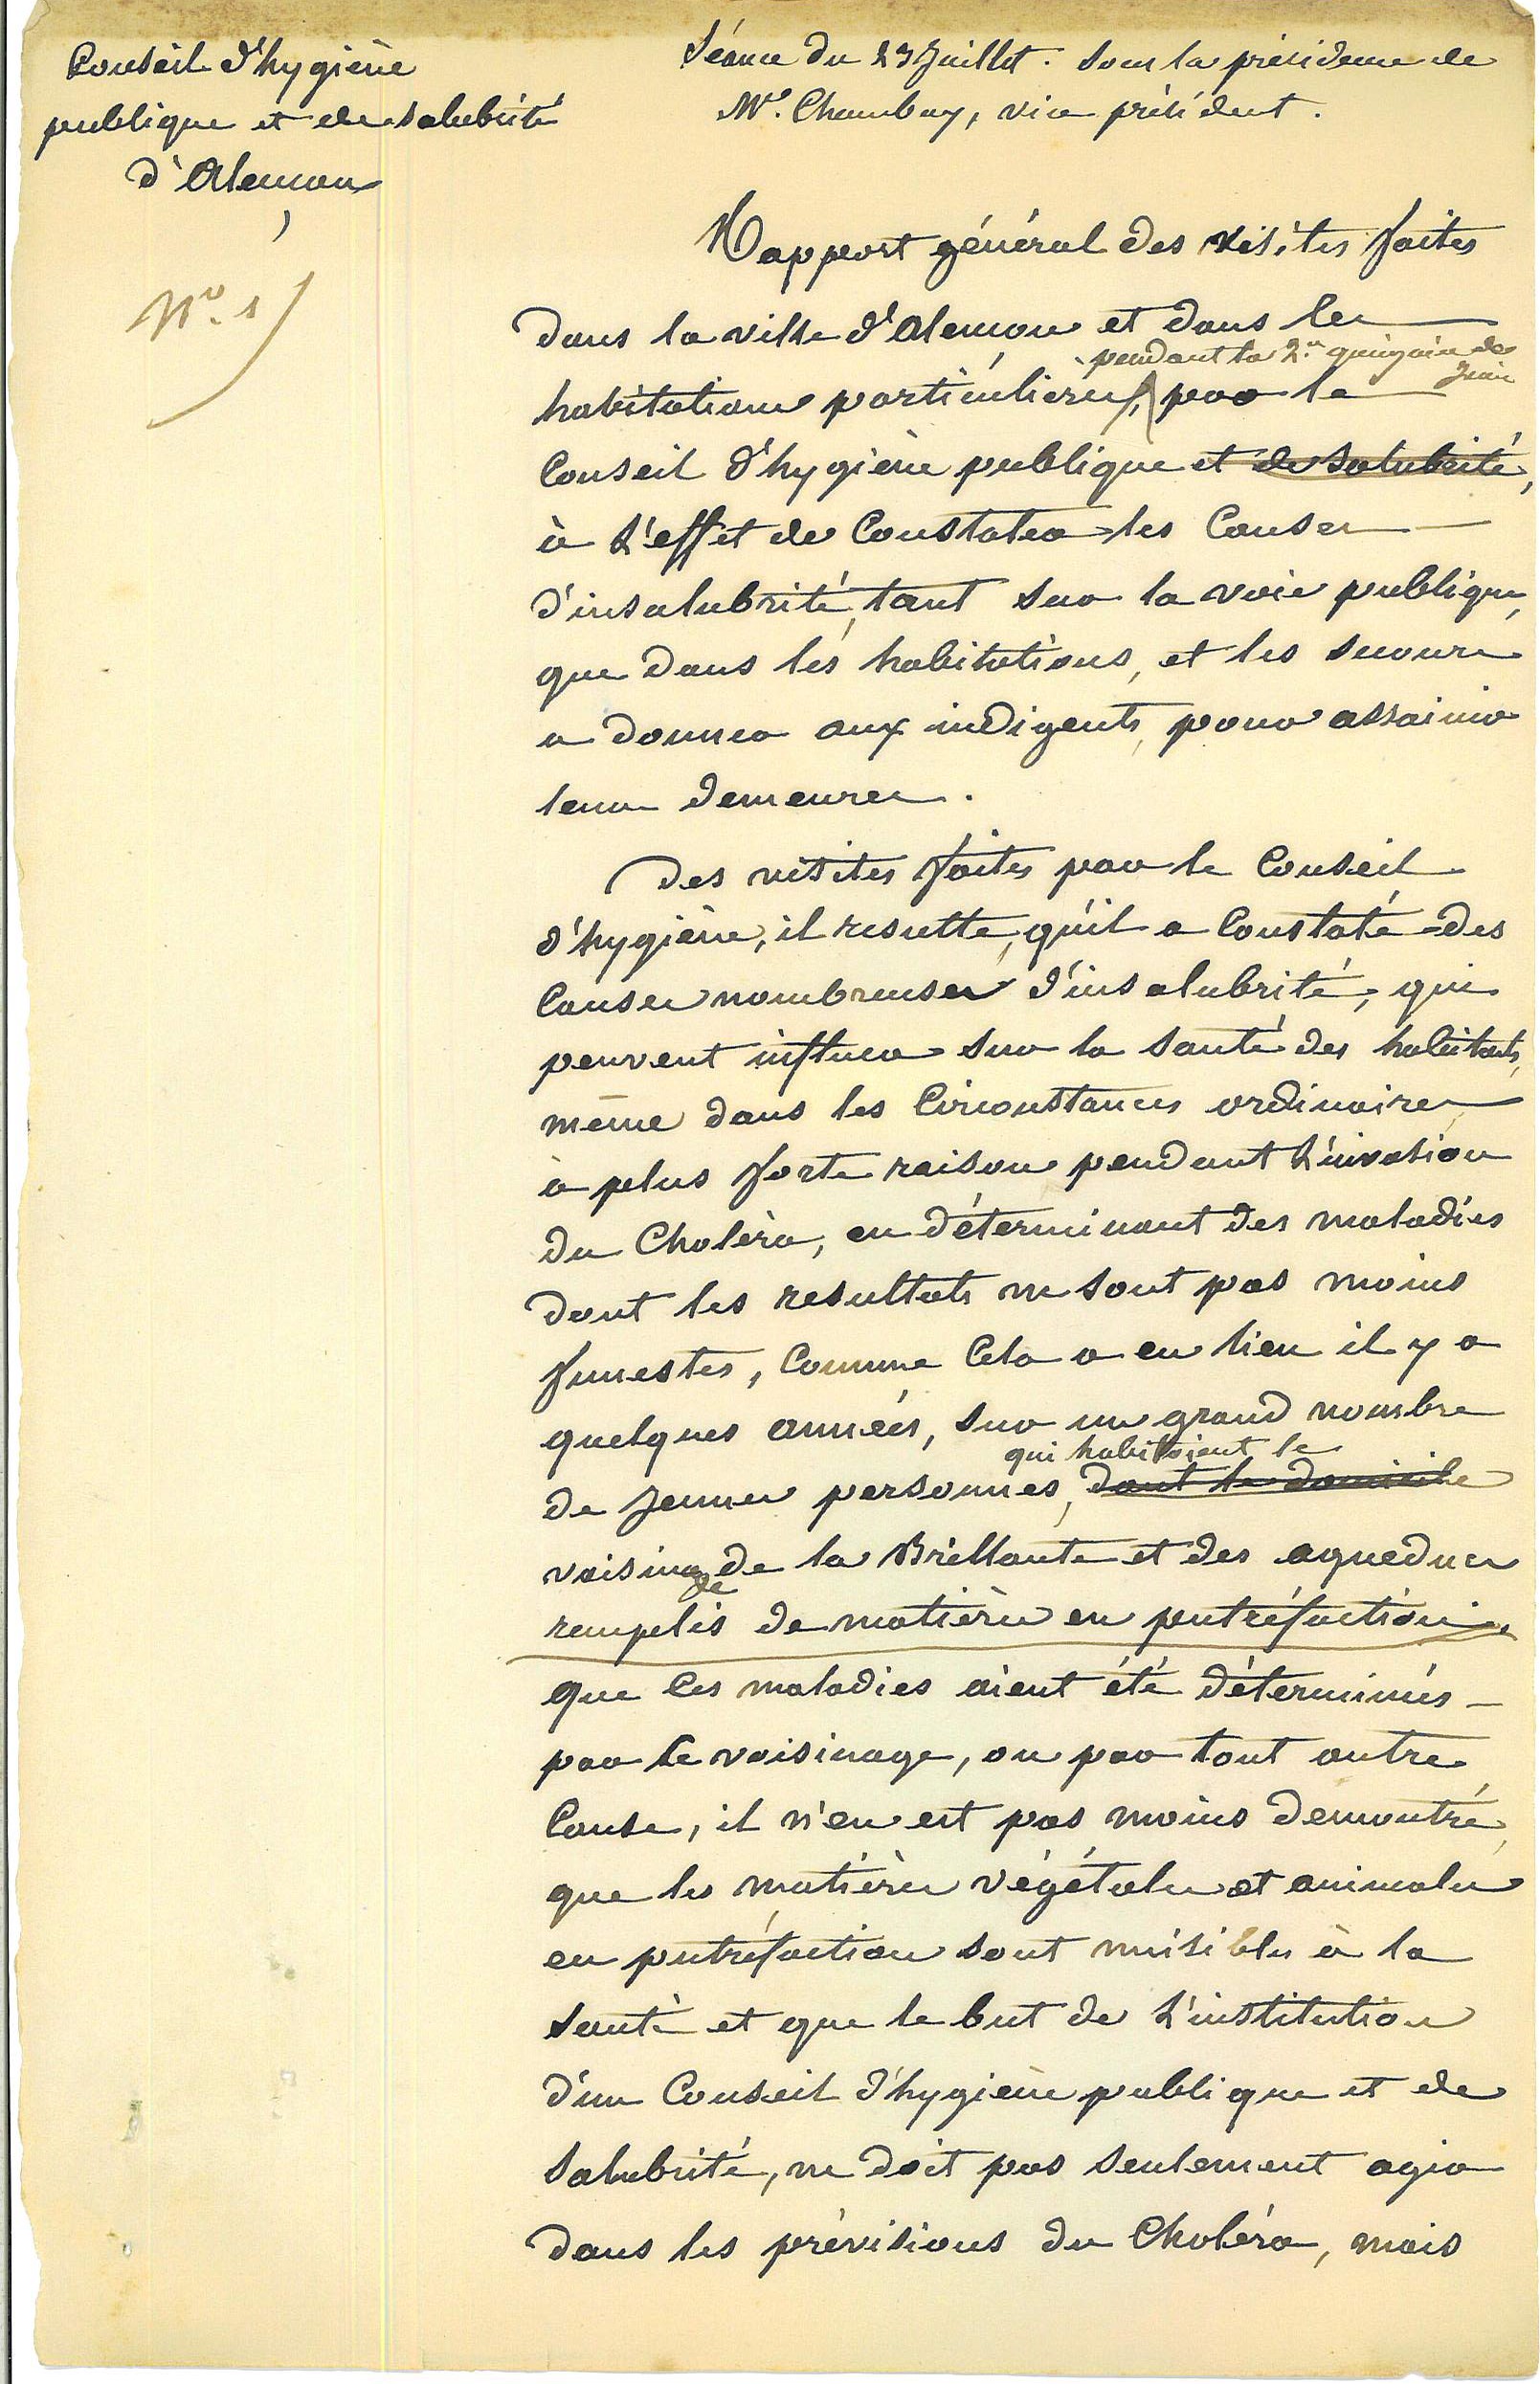 Conseil d'hygiène
publique et de salubrité
d'Alençon
N.º 1
Séance du 23 Juillet. Sous la présidence de
Mr. Chambay, vice président.
Rapport général des visites faites
dans la ville d'Alençon et dans les
pendant la 2.e quinzaine de
Juin
habitations particulières, par le
Conseil d'hygiène publique et de salubrité,
à l'effet de Constater les Causes
d'insalubrité, tant sur la voie publique,
que dans les habitations, et les secours
a donner aux indigents, pour assainir
leurs demeures.
Des visites faites par le Conseil
d'hygiène, il resulte, qu'il a Constaté des
Causes nombreuses d'insalubrité, qui
peuvent influer sur la santé des habitants,
même dans les Circonstances ordinaires
à plus forte raison pendant l'invasion
du Choléra, en déterminant des maladies
dont les resultats ne sont pas moins
funestes, Comme Cela a eu lieu il y a
quelques années, sur un grand nombre
qui habitaient le
de jeunes personnes, dont le domicile
voisinage de la Brillante et des aqueducs
remplis de matières en putréfaction.
que Ces maladies aient été déterminés
par Ce voisinage, ou par tout autre
Cause, il n'en est pas moins demontré,
que les matières végétales et animales
en putréfaction sont nuisibles à la
santé et que le but de l'institution
d'un Conseil d'hygiène publique et de
Salubrité, ne doit pas seulement agir
dans les prévisions du Choléra, mais